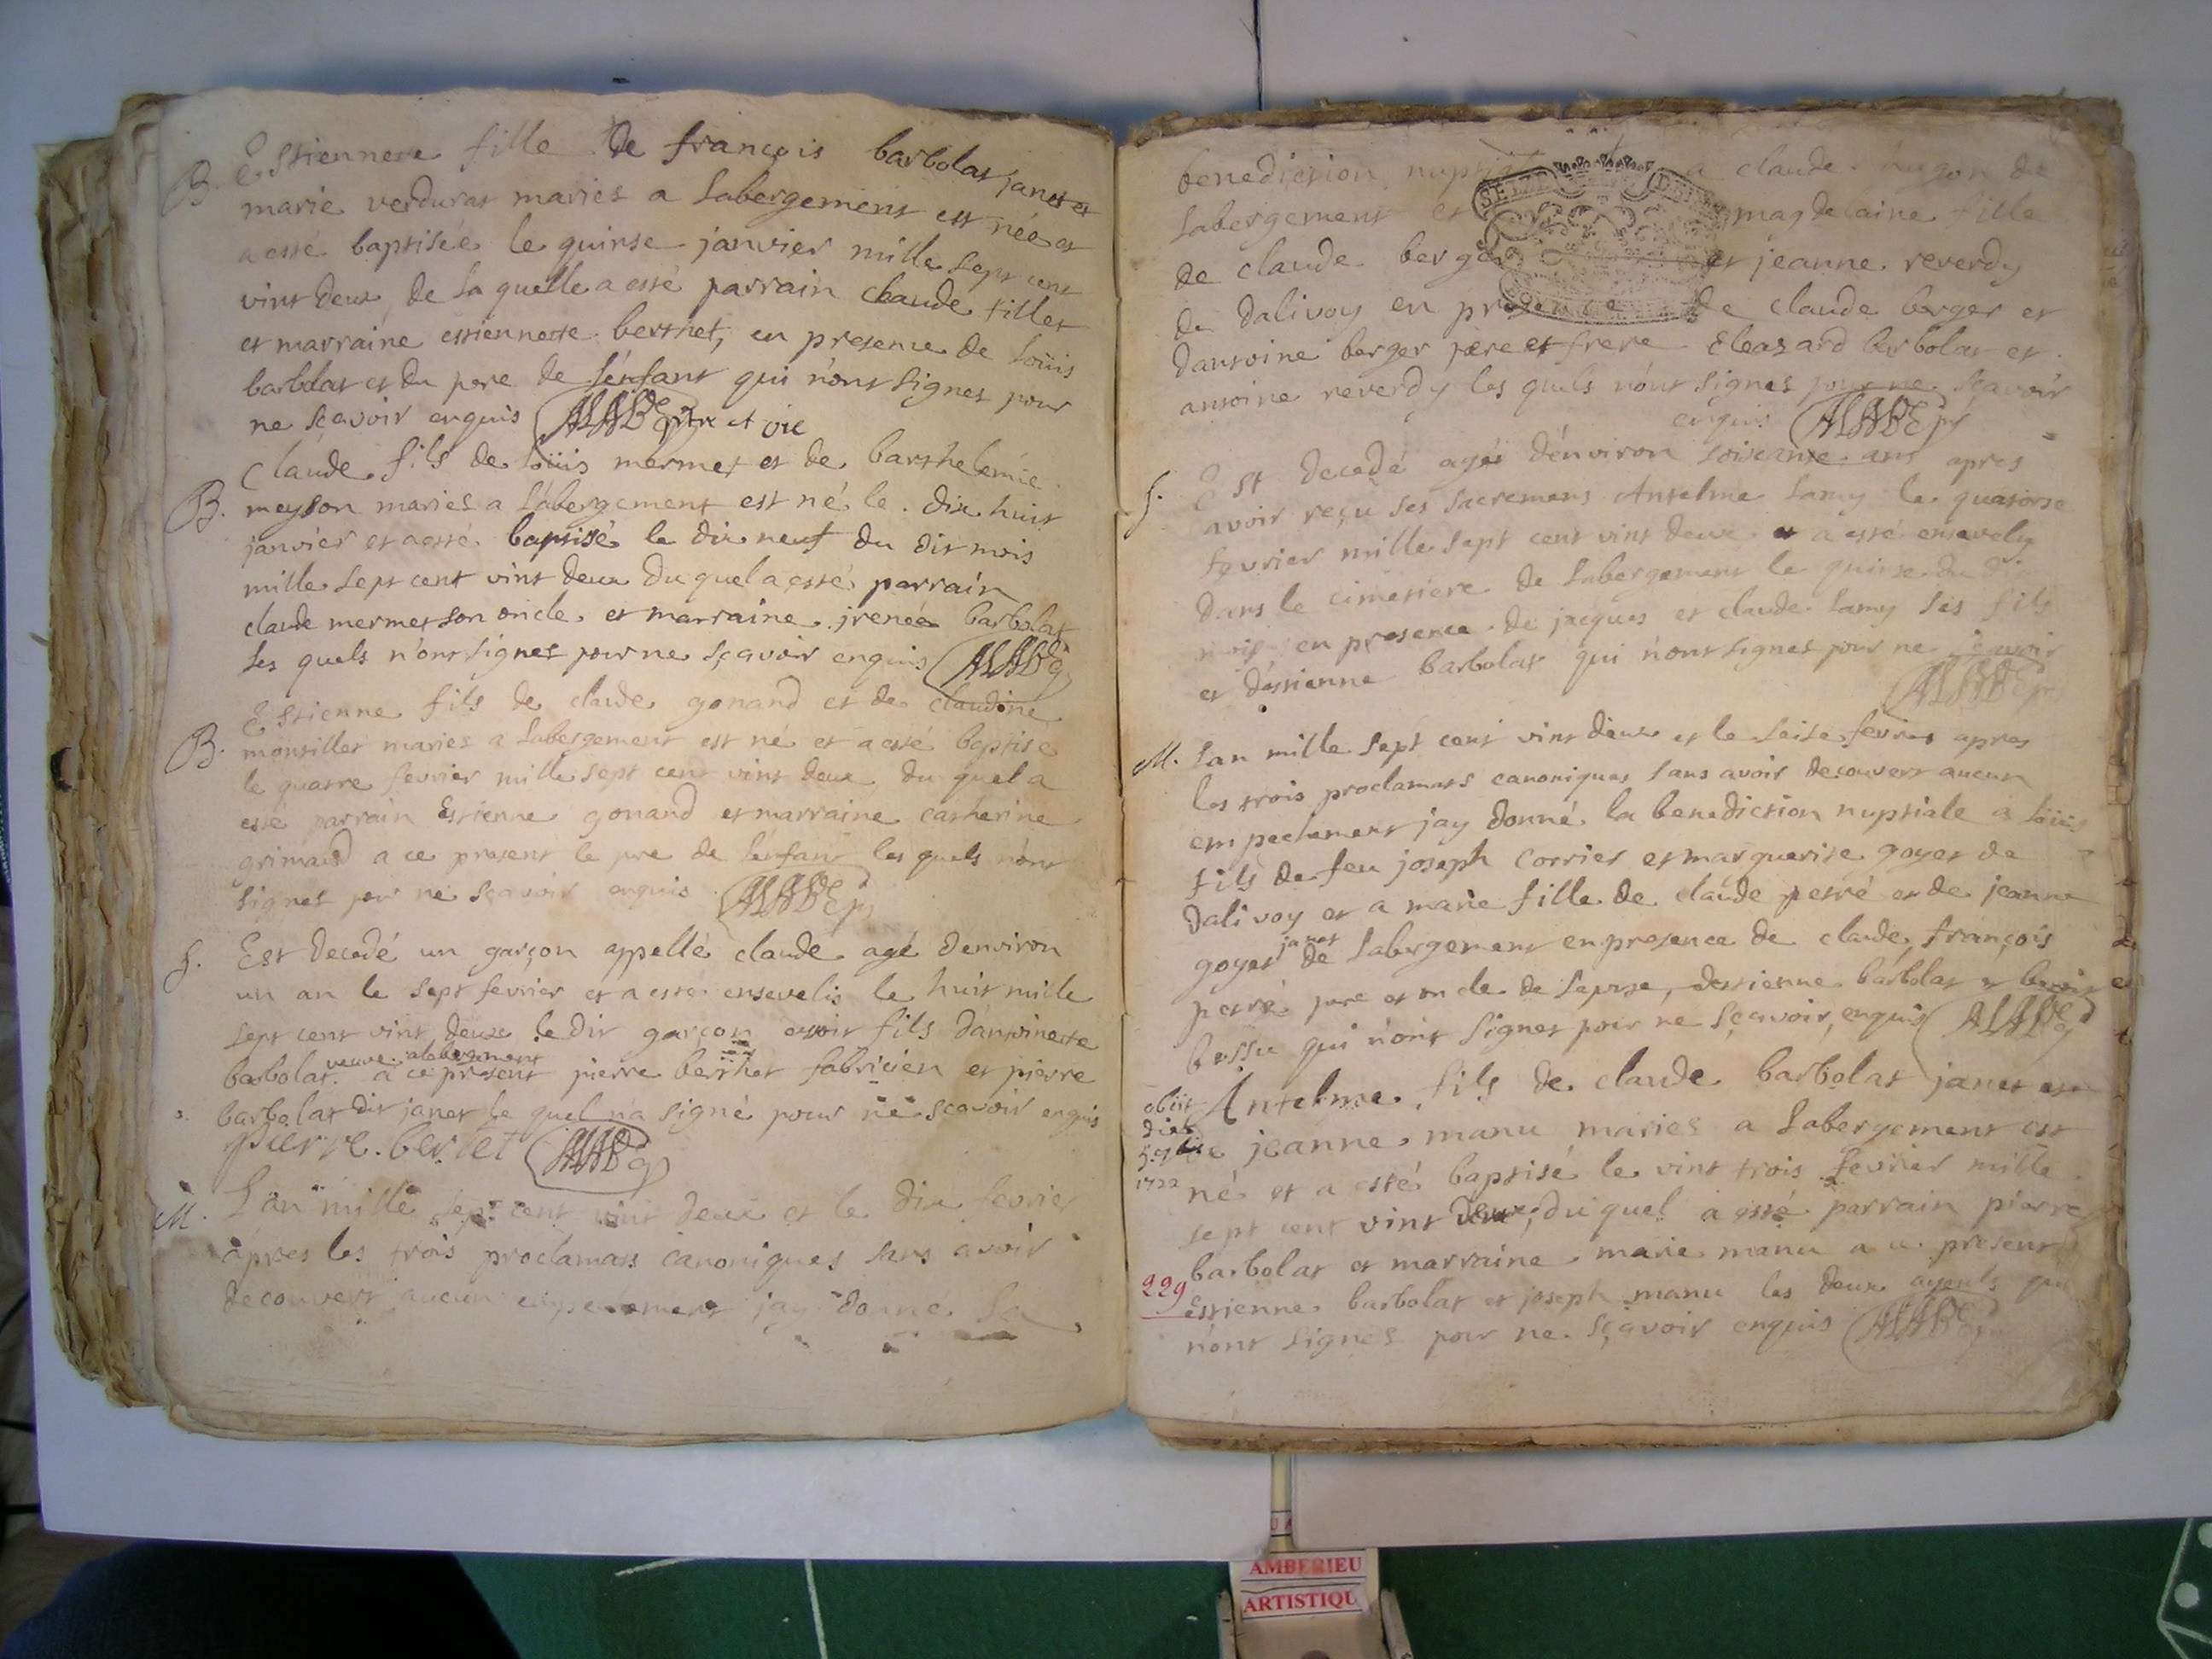 B. Estiennete fille de françois barbolat janet et
marie verdurat mariés a Labergement est née et
a esté baptisée le quinse janvier mille sept cent
vint deux de la quelle a esté parrain claude tillet
et marraine estiennette berthet, en presence de Loüis
barbolat et du pere de l'enfant qui n'ont signes pour
ne sçavoir enquis ptre et vic
Claude fils de Loüis mermet et de barthelemie
B. meyson mariés a Labergement est né le dix huit
janvier et a esté baptisé le dix neuf du dit mois
mille sept cent vint deux du quel a esté parrain
claude mermet son oncle et marraine jrenée barbolat
les quels n'ont signes pour ne sçavoir enquis
Estienne fils de claude gonand et de claudine
B. montillet mariés a Labergement est né et a esté baptisé
le quatre fevrier mille sept cent vint deux du quel a
esté parrain Estienne gonand et marraine catherine
grimaud a ce present le pere de l'enfant les quels n'ont
signes pour ne sçavoir enquis
S. Est decedé un garçon appellé claude agé denviron
un an le sept fevrier et a esté ensevelis le huit mille
sept cent vint deux le dit garçon estoit fils dantoinette
veuve a labergement
barbolat a ce present pierre berthet fabricien et pierre
barbolat dit janet le quel n'a signé pour ne sçavoir enquis
pierre. bertet
M. L'an mille sept cent vint deux et le dix fevrier
apres les trois proclamats canoniques sans avoir
decouvert aucun empechement jay donné la
benediction a claude de
Labergement et magdelaine fille
de claude berger et jeanne reverdy
de dalivoy en presence de claude berger et
dantoine berger pere et frere Eleazard barbolat et
antoine reverdy les quels n'ont signes pour ne sçavoir
enquis
S. Est decedé agé d'environ soixante ans apres
avoir reçu ses sacremens Antelme Lamy le quatorse
fevrier mille sept cent vint deux et a esté ensevely
dans le cimetiere de Labergement le quinse du
mois en presence de jacques et claude Lamy ses fils
et d'estienne barbolat qui n'ont signes pour ne sçavoir
M. Lan mille sept cent vint deux et le seise fevrier apres
les trois proclamats canoniques sans avoir decouvert aucun
empechement jay donné la benediction nuptiale a Loüis
fils de feu joseph Corrier et marguerite goyet de
dalivoy et a marie fille de claude perré et de jeanne
janet
goyet de Labergement en presence de claude, françois
perré pere et oncle de l'epouse, destienne barbolat et
bossu qui n'ont signes pour ne sçavoir enquis
obiit
die
5 9bris
1722
Antelme fils de claude barbolat janet et
de jeanne manu mariés a Labergement est
né et a esté baptisé le vint trois fevrier mille
sept cent vint deux, du quel a esté parrain pierre
barbolat et marraine marie manu a ce present
229
estienne barbolat et joseph manu les deux ayeuls qui
n'ont signes pour ne sçavoir enquis
AMBERIEU
ARTISTIQU